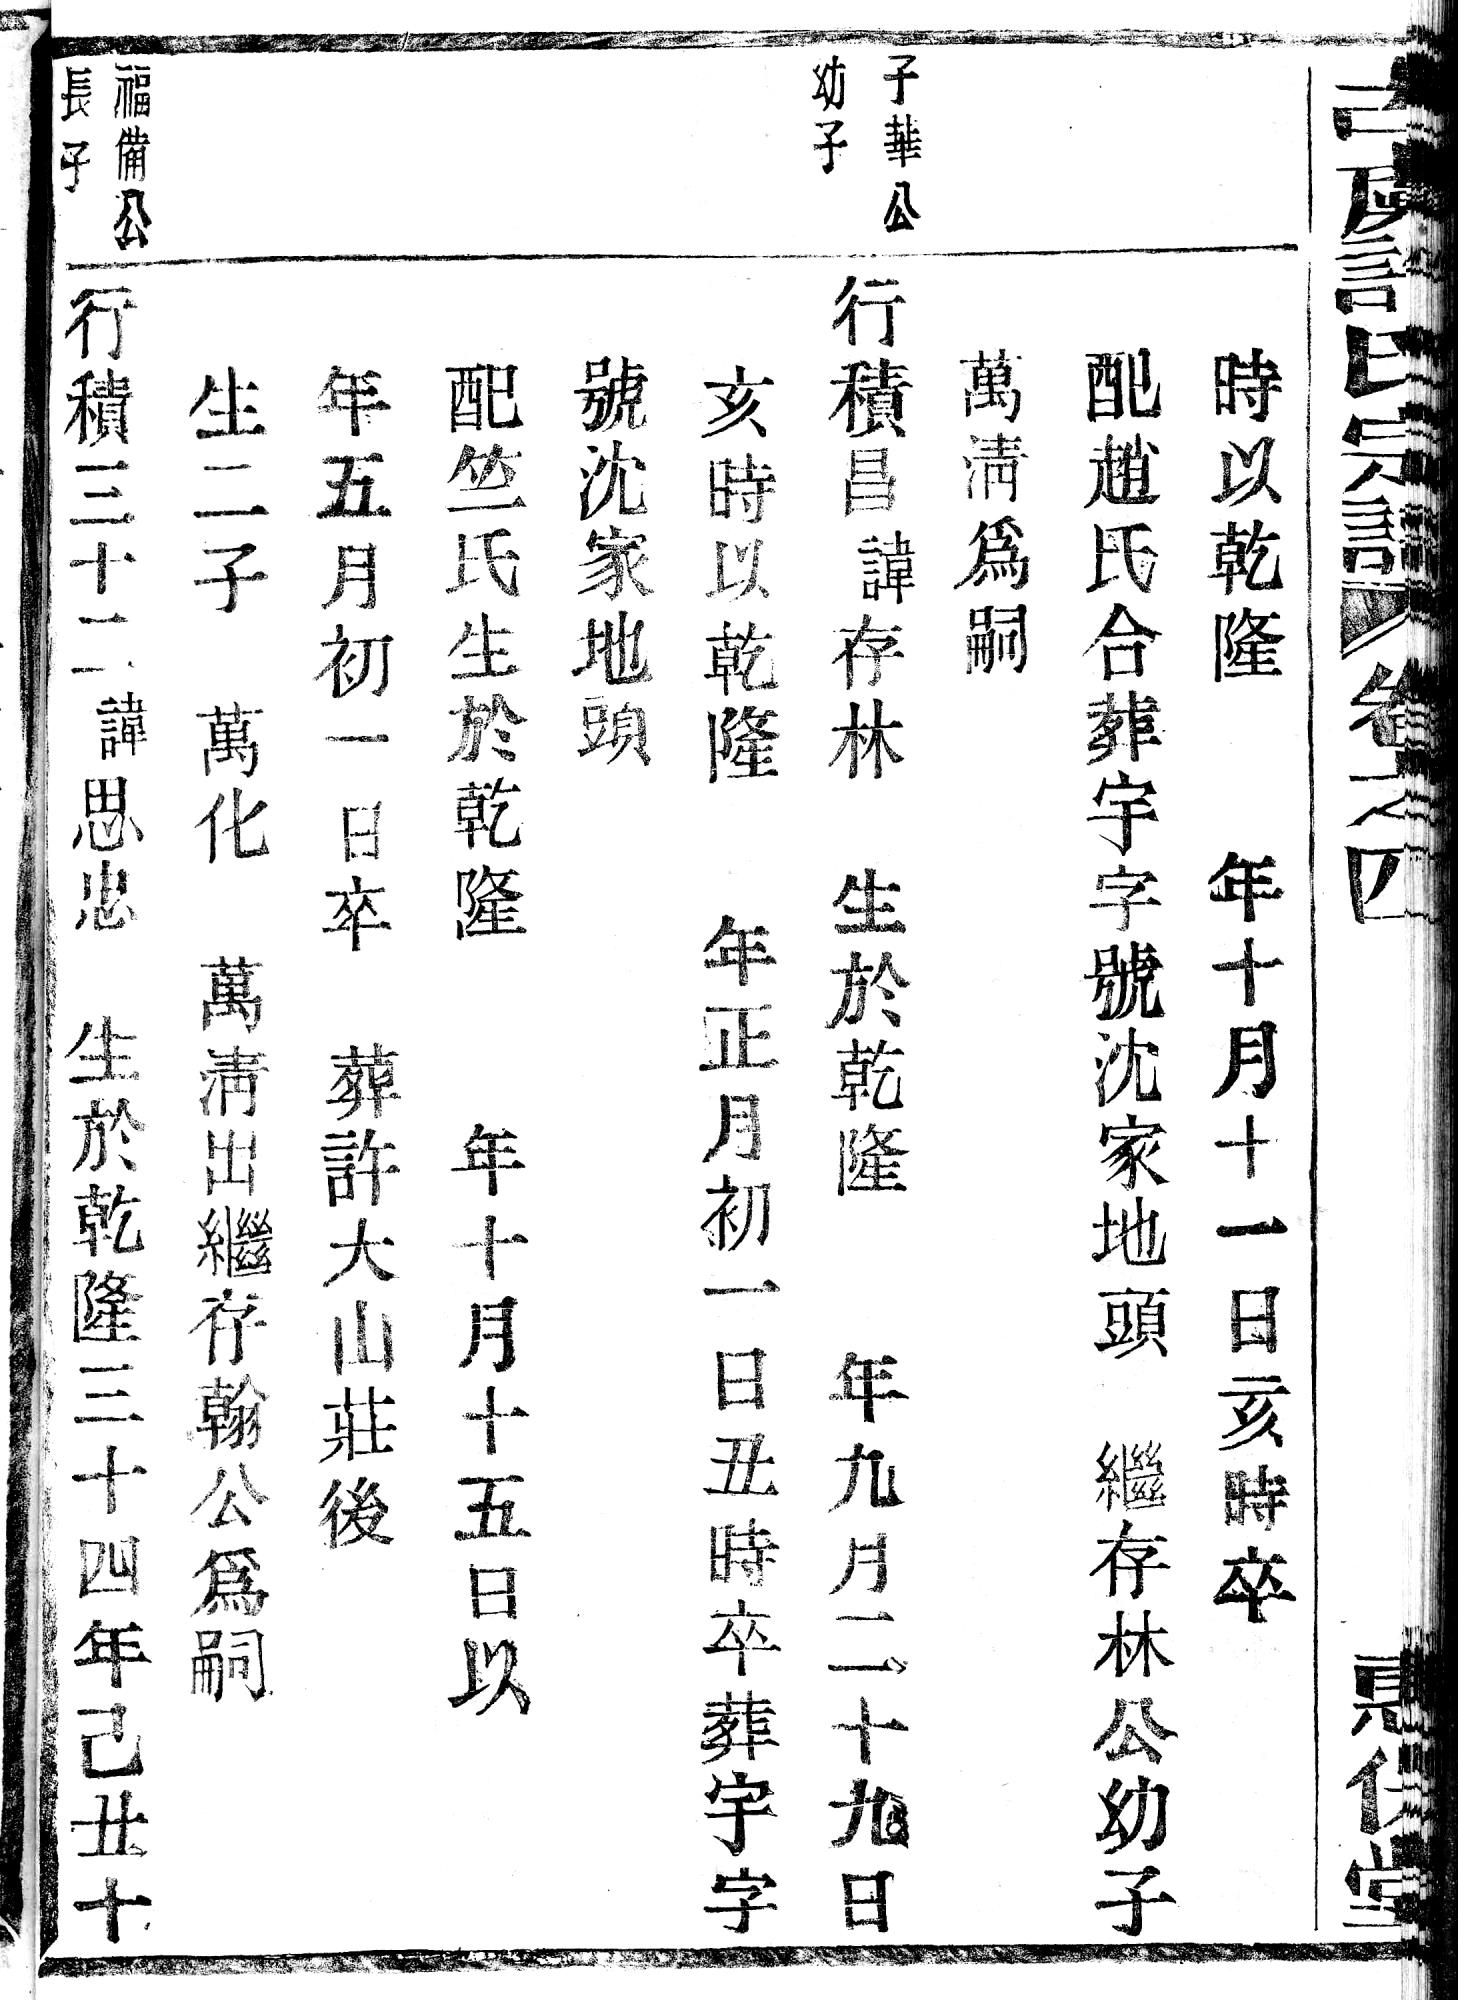 許氏宗譜 卷之四
堂
時以乾隆 年十月十一日亥時卒
配趙氏合葬宇字號沈家地頭 繼存林公幼子
萬淸爲嗣
子華公
幼子
行積昌 諱存林 生於乾隆 年九月二十九日
亥時以乾隆 年正月初一日丑時卒葬宇字
號沈家地頭
配竺氏生於乾隆 年十月十五日以
年五月初一日卒 葬許大山莊後
生二子 萬化 萬淸出繼存翰公爲嗣
福備公
長子
行積三十二 諱思忠 生於乾隆三十四年己丑十